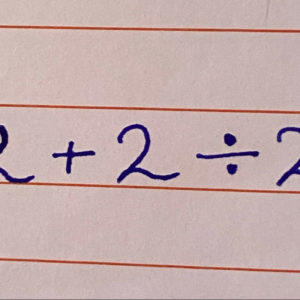 2 + 2 ÷ 2